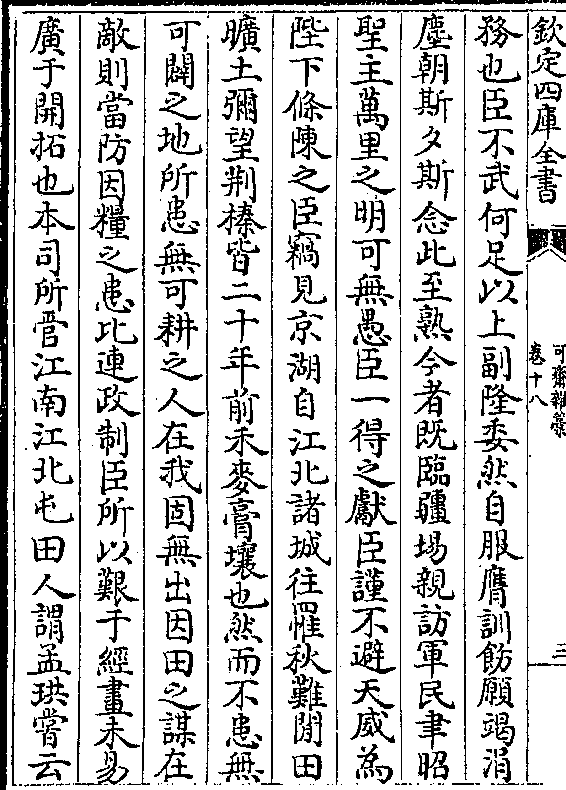 欽定四庫全書
可齋雜藁
卷十八
三
務也臣不武何足以上副隆委然自服膺訓飭願竭涓
塵朝斯夕斯念此至熟今者既臨疆埸親訪軍民聿昭
聖主萬里之明可無愚臣一得之獻臣謹不避天威為
陛下條陳之臣竊見京湖自江北諸城往罹秋難閒田
曠土彌望荆榛皆二十年前禾麥膏壤也然而不患無
可闢之地所患無可耕之人在我固無出因田之謀在
敵則當防因糧之患比連政制臣所以艱于經畫未易
廣于開拓也本司所管江南江北屯田人謂孟珙嘗云